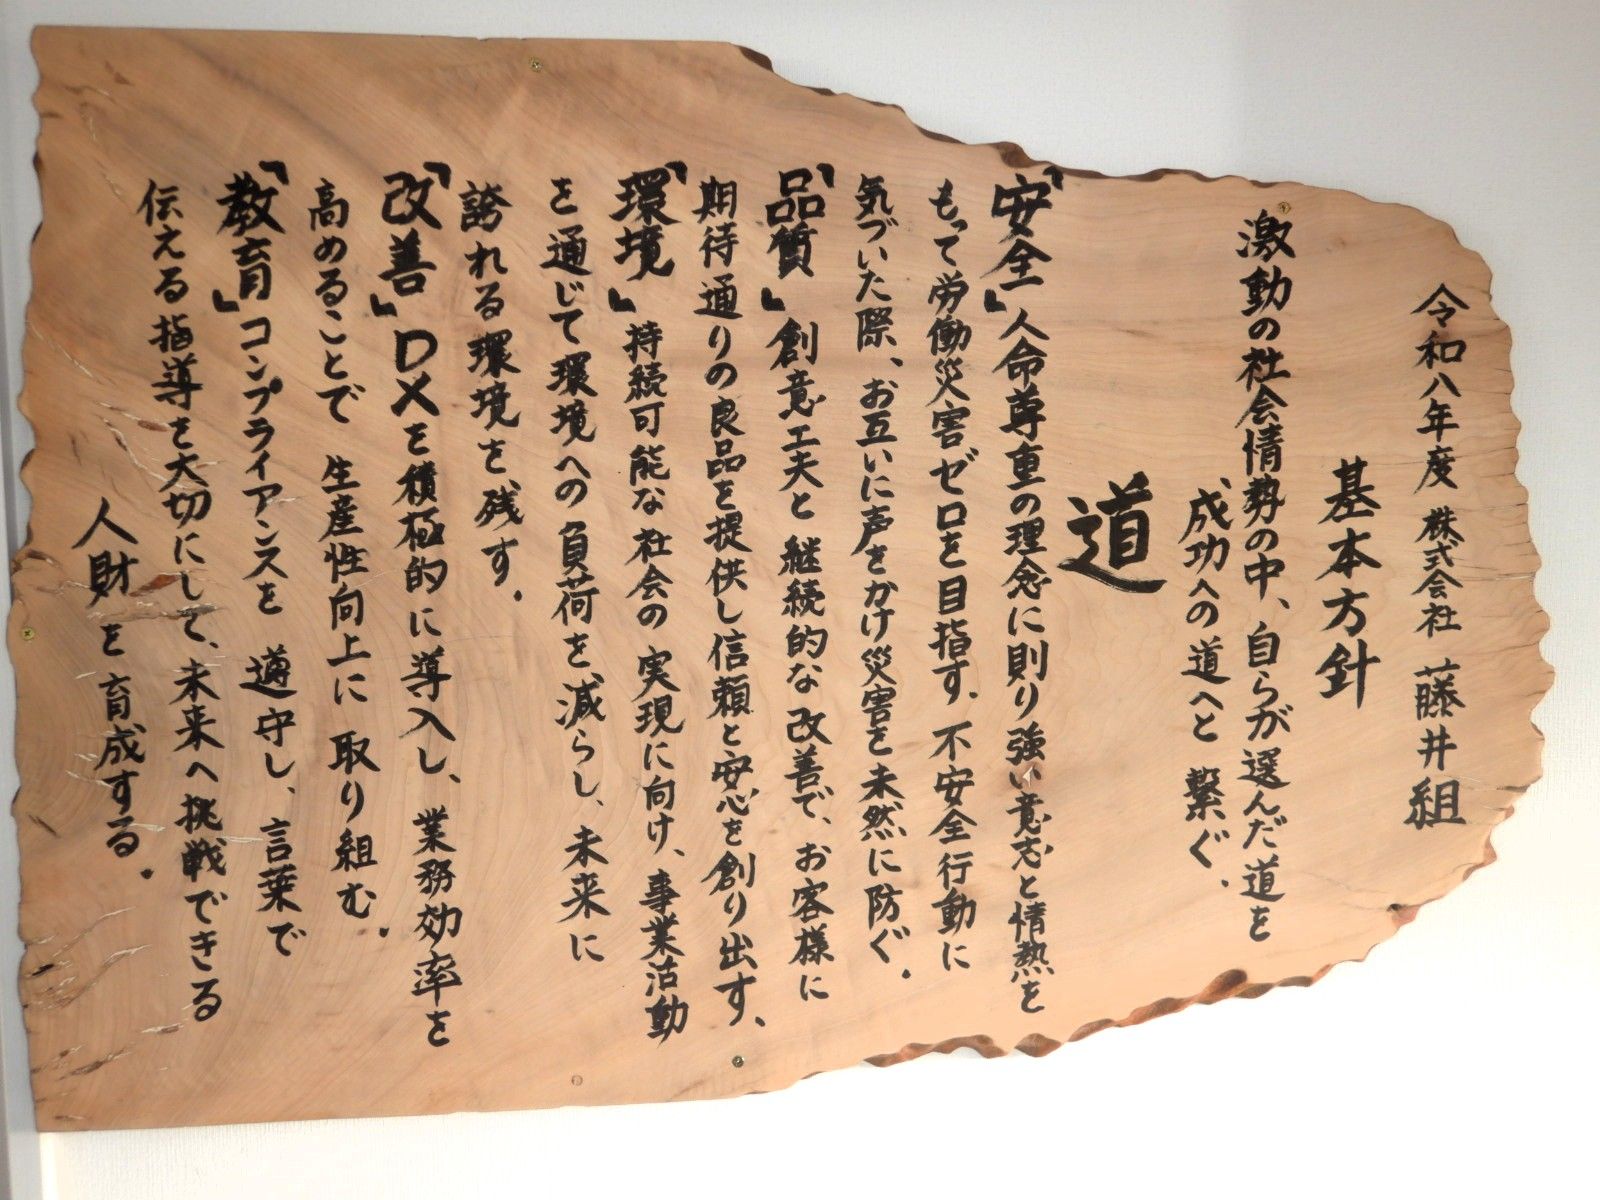 令和八年度 株式会社 藤井組
基本方針
激動の社会情勢の中、自らが選んだ道を
成功への道へと繋ぐ.
道
「安全」人命尊重の理念に則り強い意志と情熱を
もって労働災害ゼロを目指す.不安全行動に
気づいた際、お互いに声をかけ災害を未然に防ぐ.
「品質」創意工夫と継続的な改善で、お客様に
期待通りの良品を提供し信頼と安心を創り出す、
「環境」持続可能な社会の実現に向け、事業活動
を通じて環境への負荷を減らし、未来に
誇れる環境を残す.
「改善」DXを積極的に導入し、業務効率を
高めることで 生産性向上に 取り組む.
「教育」コンプライアンスを 遵守し、言葉で
伝える指導を大切にして、未来へ挑戦できる
人財を育成する.